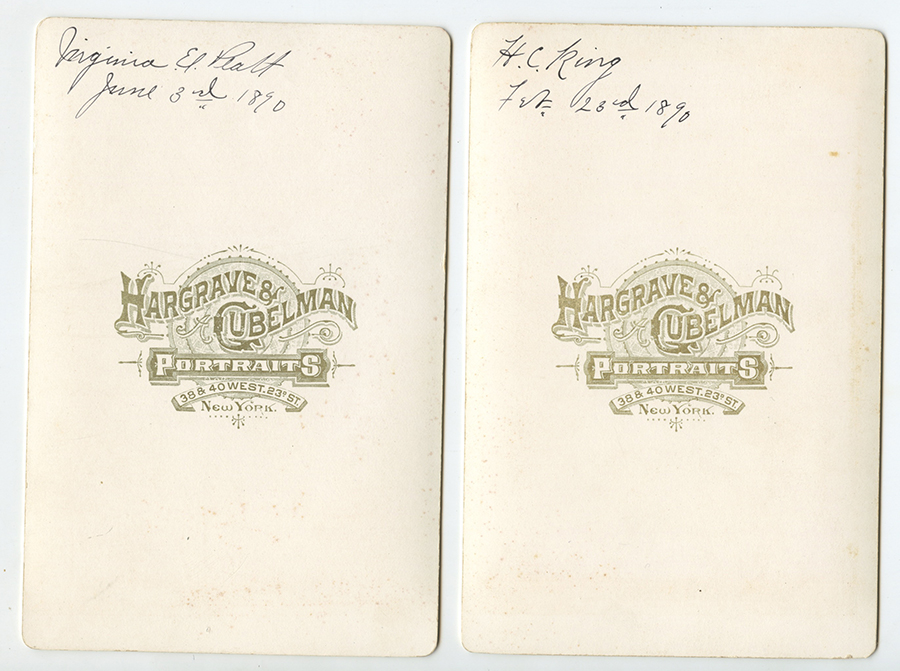 Virginia E. Platt
June 3rd 1890
HARGRAVE & GUBELMAN
PORTRAITS
38 & 40 WEST. 23D ST.
NEW YORK.
H. C. King
Feb 23rd 1890
HARGRAVE & GUBELMAN
PORTRAITS
38 & 40 WEST. 23D ST.
NEW YORK.